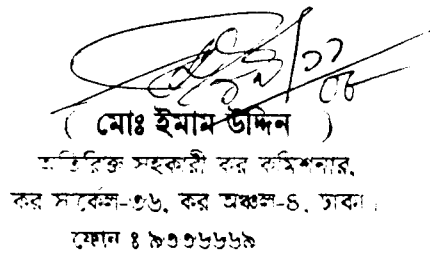 ( মোঃ ইমাম উদ্দিন )
অতিরিক্ত সহকারী কর কমিশনার,
কর সার্কেল-৩৬, কর অঞ্চল-৪, ঢাকা।
ফোন ঃ ৯৩৩৬৬৬৯